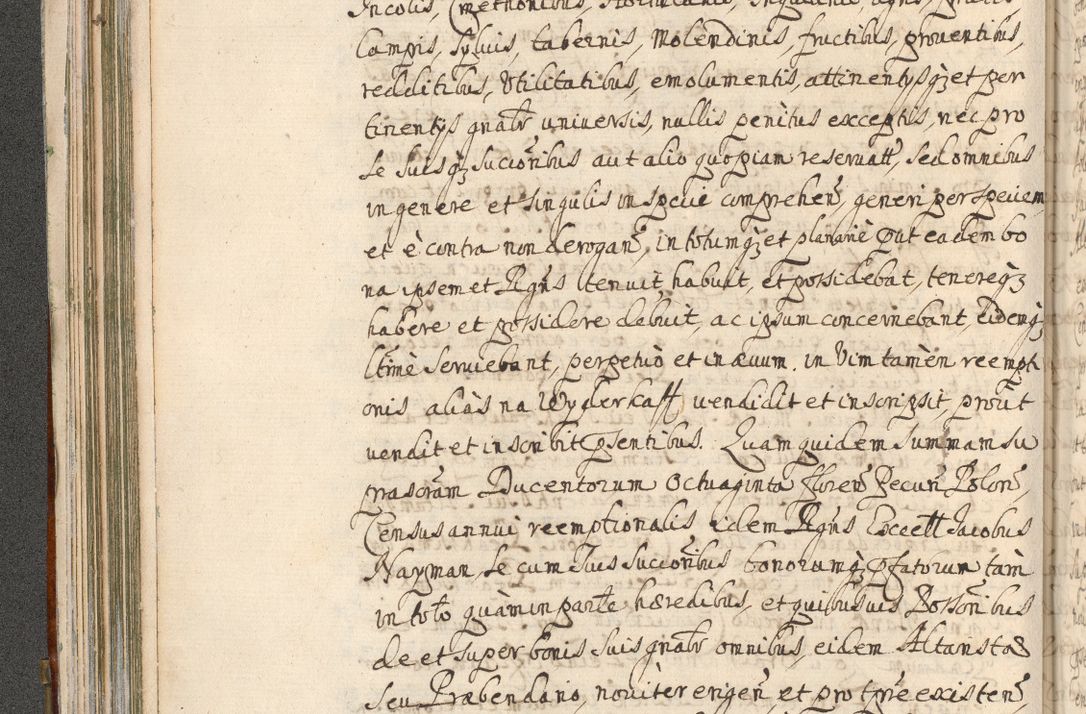 Incolis, Cmethonibus, Hortulanis, Inquilinis agris, pratis
Campis, Sylvis, tabernis, Molendinis, fructibus, proventibus,
redditibus, Utilitatibus, emolumentis, attinentysq̃ et per
tinentys gñalr̃ universis, nullis penitus exceptis, nec pro
se suisq̃ Sucioribus aut alio quopiam reservatt, Sed omnibus
in genere et Singulis in specie comprehen̄, generi per speciem
et è contra non derogan̄, in totumq̃ et planariè ꝓut eadem bo
na ipsemet Rgñs ltenuit habuit, et possidebat, tenereq̃
habere et possidere debuit, ac ipsum concernebant, Eidemq̃
ltimè Serviebant, perpetuò et in ævum. in Vim tamèn reempti
onis aliàs na Wyderkaff vendidit et inscripsit, proùt
vendit et inscribit pñsentibus. Quam quidem Summam su
prascr̃am Ducentorum Octuaginta floren̄ Pecun̄ Polon̄,
Census annui reemptionalis idem Rgñs Excettt Jacobus
Nayman, se cum suis Sucioribus bonorumq̃ pfatorum tàm
in toto quàm in parte hæredibus, et quibusvis Possoribus
de et super bonis suis gñalr̃ omnibus, eidem Altaristæ
seu Præbendario, noviter ergen̄, et pro tp̃re existen̄